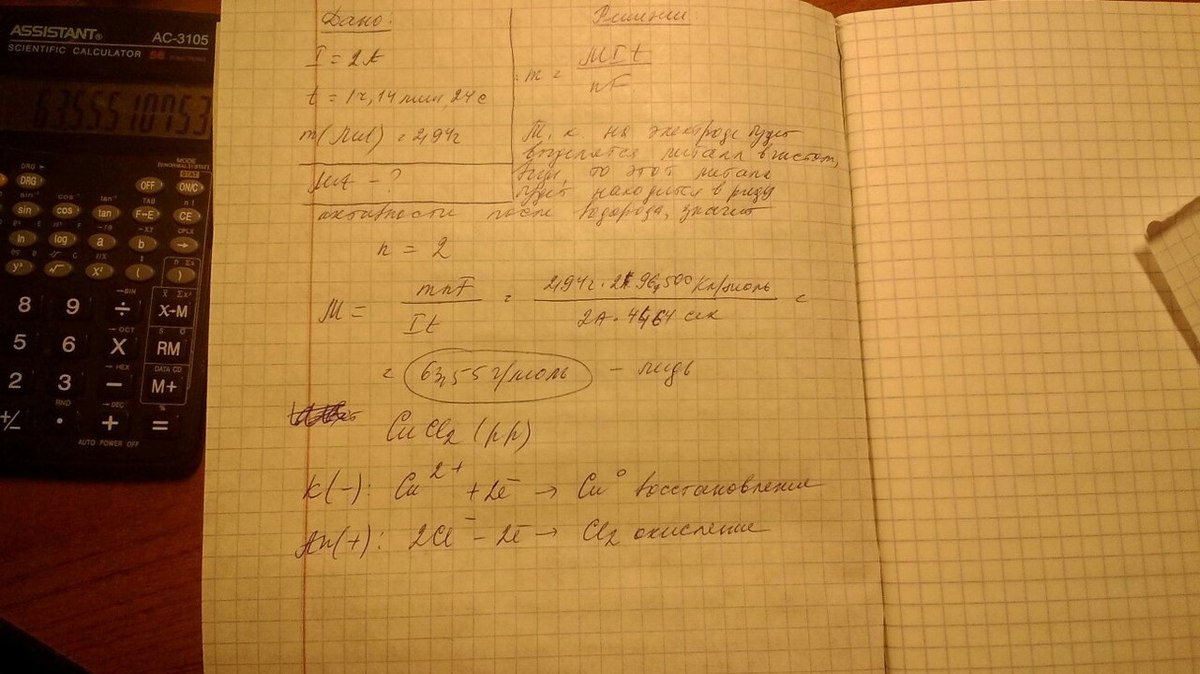 ASSISTANT®
AC-3105
SCIENTIFIC CALCULATOR 56 FUNCTIONS
63.55510753
DRG►
DRG
OFF
ON/C
MODE
STAT
sin⁻¹ cos⁻¹ tan⁻¹ TAB n!
sin cos tan F↔E CE
ln log a b →
yˣ √ X² ( )
8 9 ÷ X→M
→BIN
→OCT
5 6 X RM
→HEX
DATA CD
2 3 − M+
RND →DEC %
+/− · + =
AUTO POWER OFF
Дано:
I = 2A
t = 1ч, 14 мин, 24 с
m(Me) = 2,94г
Me - ?
Решение:
m = MIt / nF
Т. к. на электроде будет
выделятся металл в чистом
виде, то этот металл
будет находится в ряду
активности после водорода, значит
n = 2
M = mnF / It = 2,94г · 2 · 96,500 Кл/моль / 2A · 4464 сек =
= 63,55 г/моль - медь
CuCl₂ (р.р)
K(-): Cu²⁺ + 2e̅ → Cu⁰ восстановление
An(+): 2Cl⁻ - 2e̅ → Cl₂ окисление